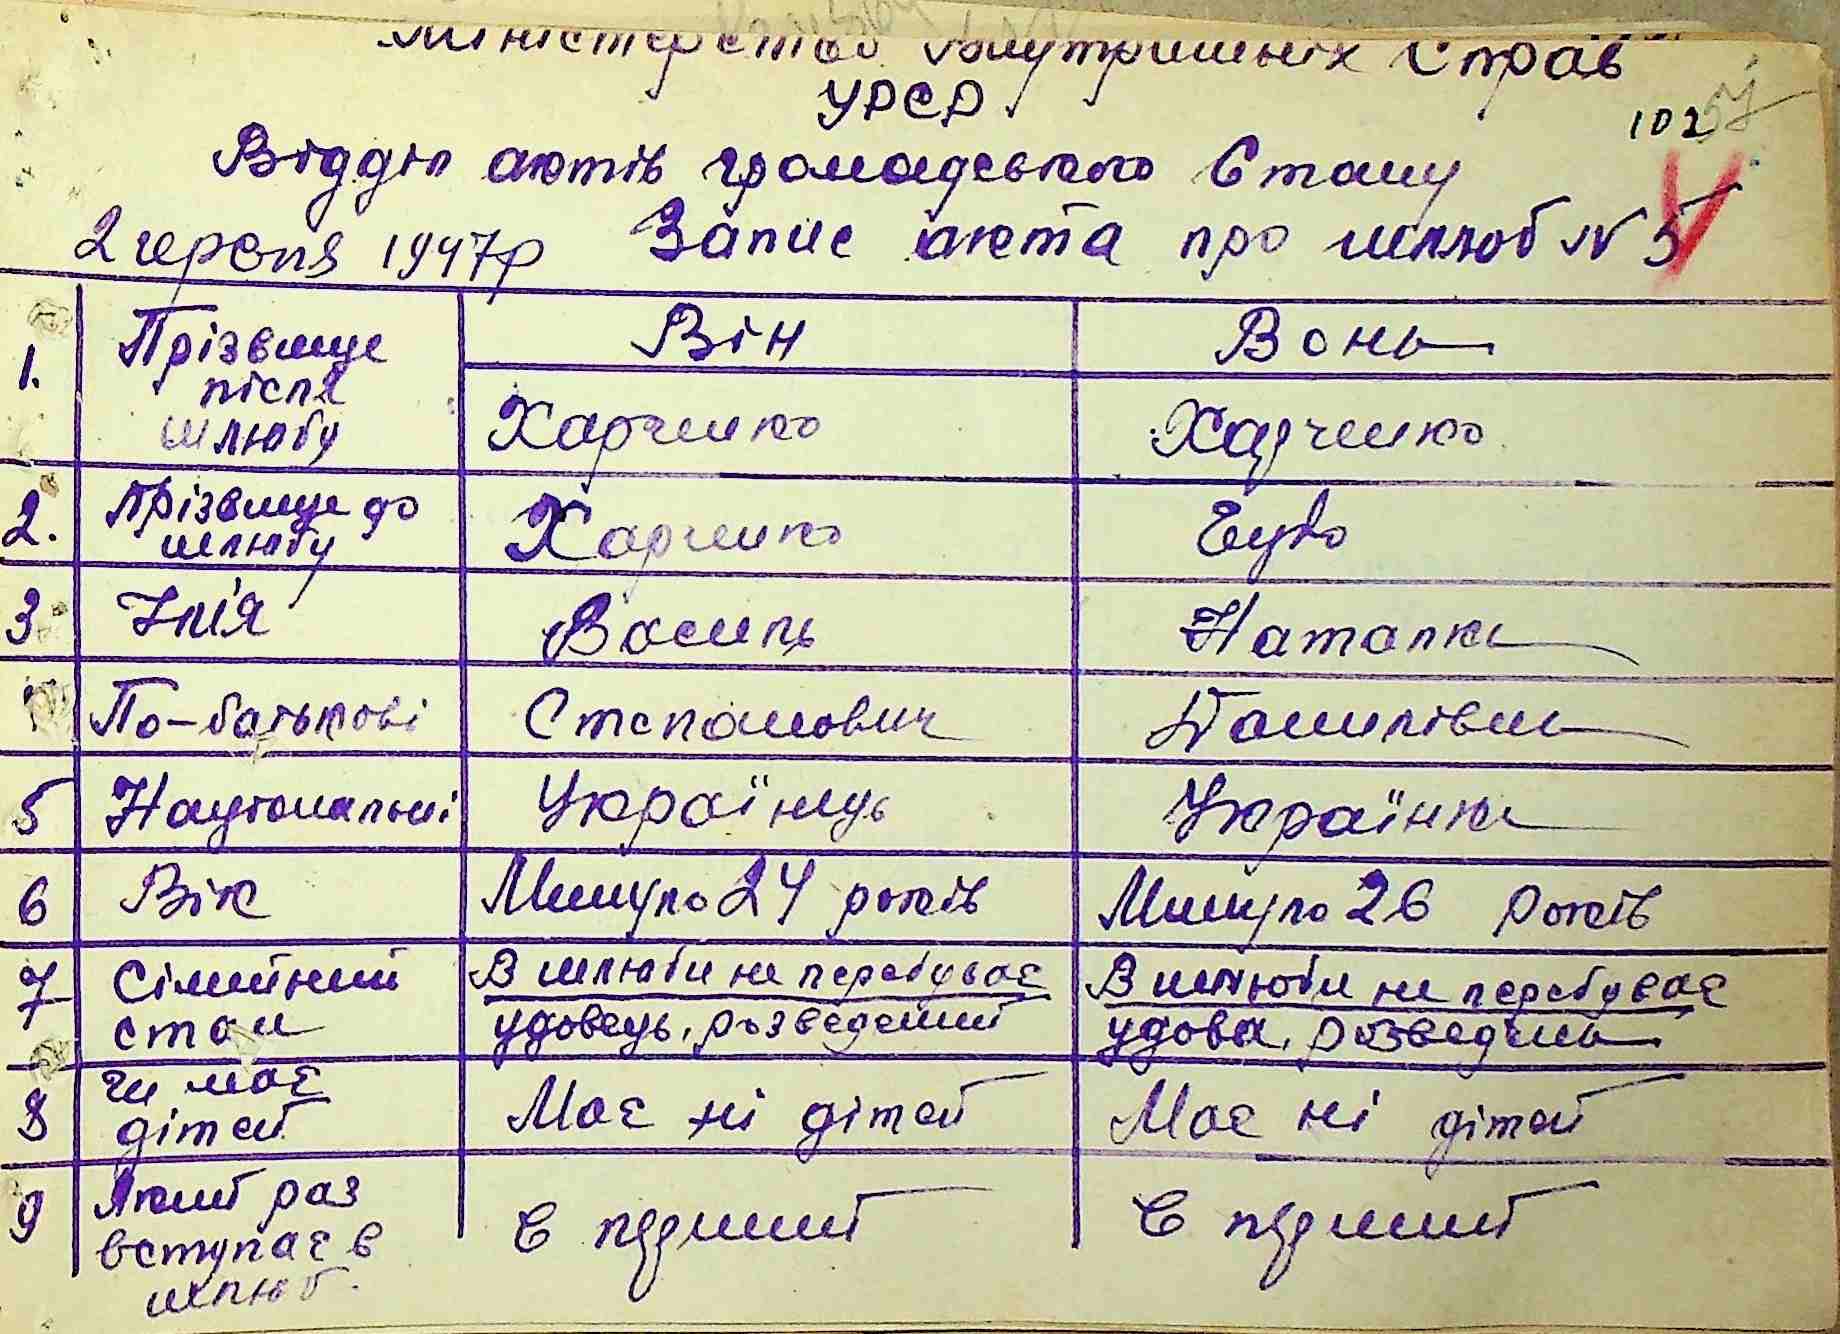 Міністерство Внутришніх Справ
УРСР
102
Відділ актів громадського Стану
2 червня 1947р Запис акта про шлюб № 5
1. Прізвище після шлюбу
Він
Вона
Харченко
Харченко
2. Прізвище до шлюбу
Харченко
3 Імя
Василь
Наталка
По-батькові
Степанович
Данилівна
5 Національні
Українець
Українка
6 Вік
Минуло 24 років
Минуло 26 років
7 Сімийний стан
В шлюби не перебуває
удовець, розведений
В шлюби не перебуває
удова, розведена
8 Чи має дітей
Має ні дітей
Має ні дітей
9 Який раз вступає в шлюб.
В перший
В перший